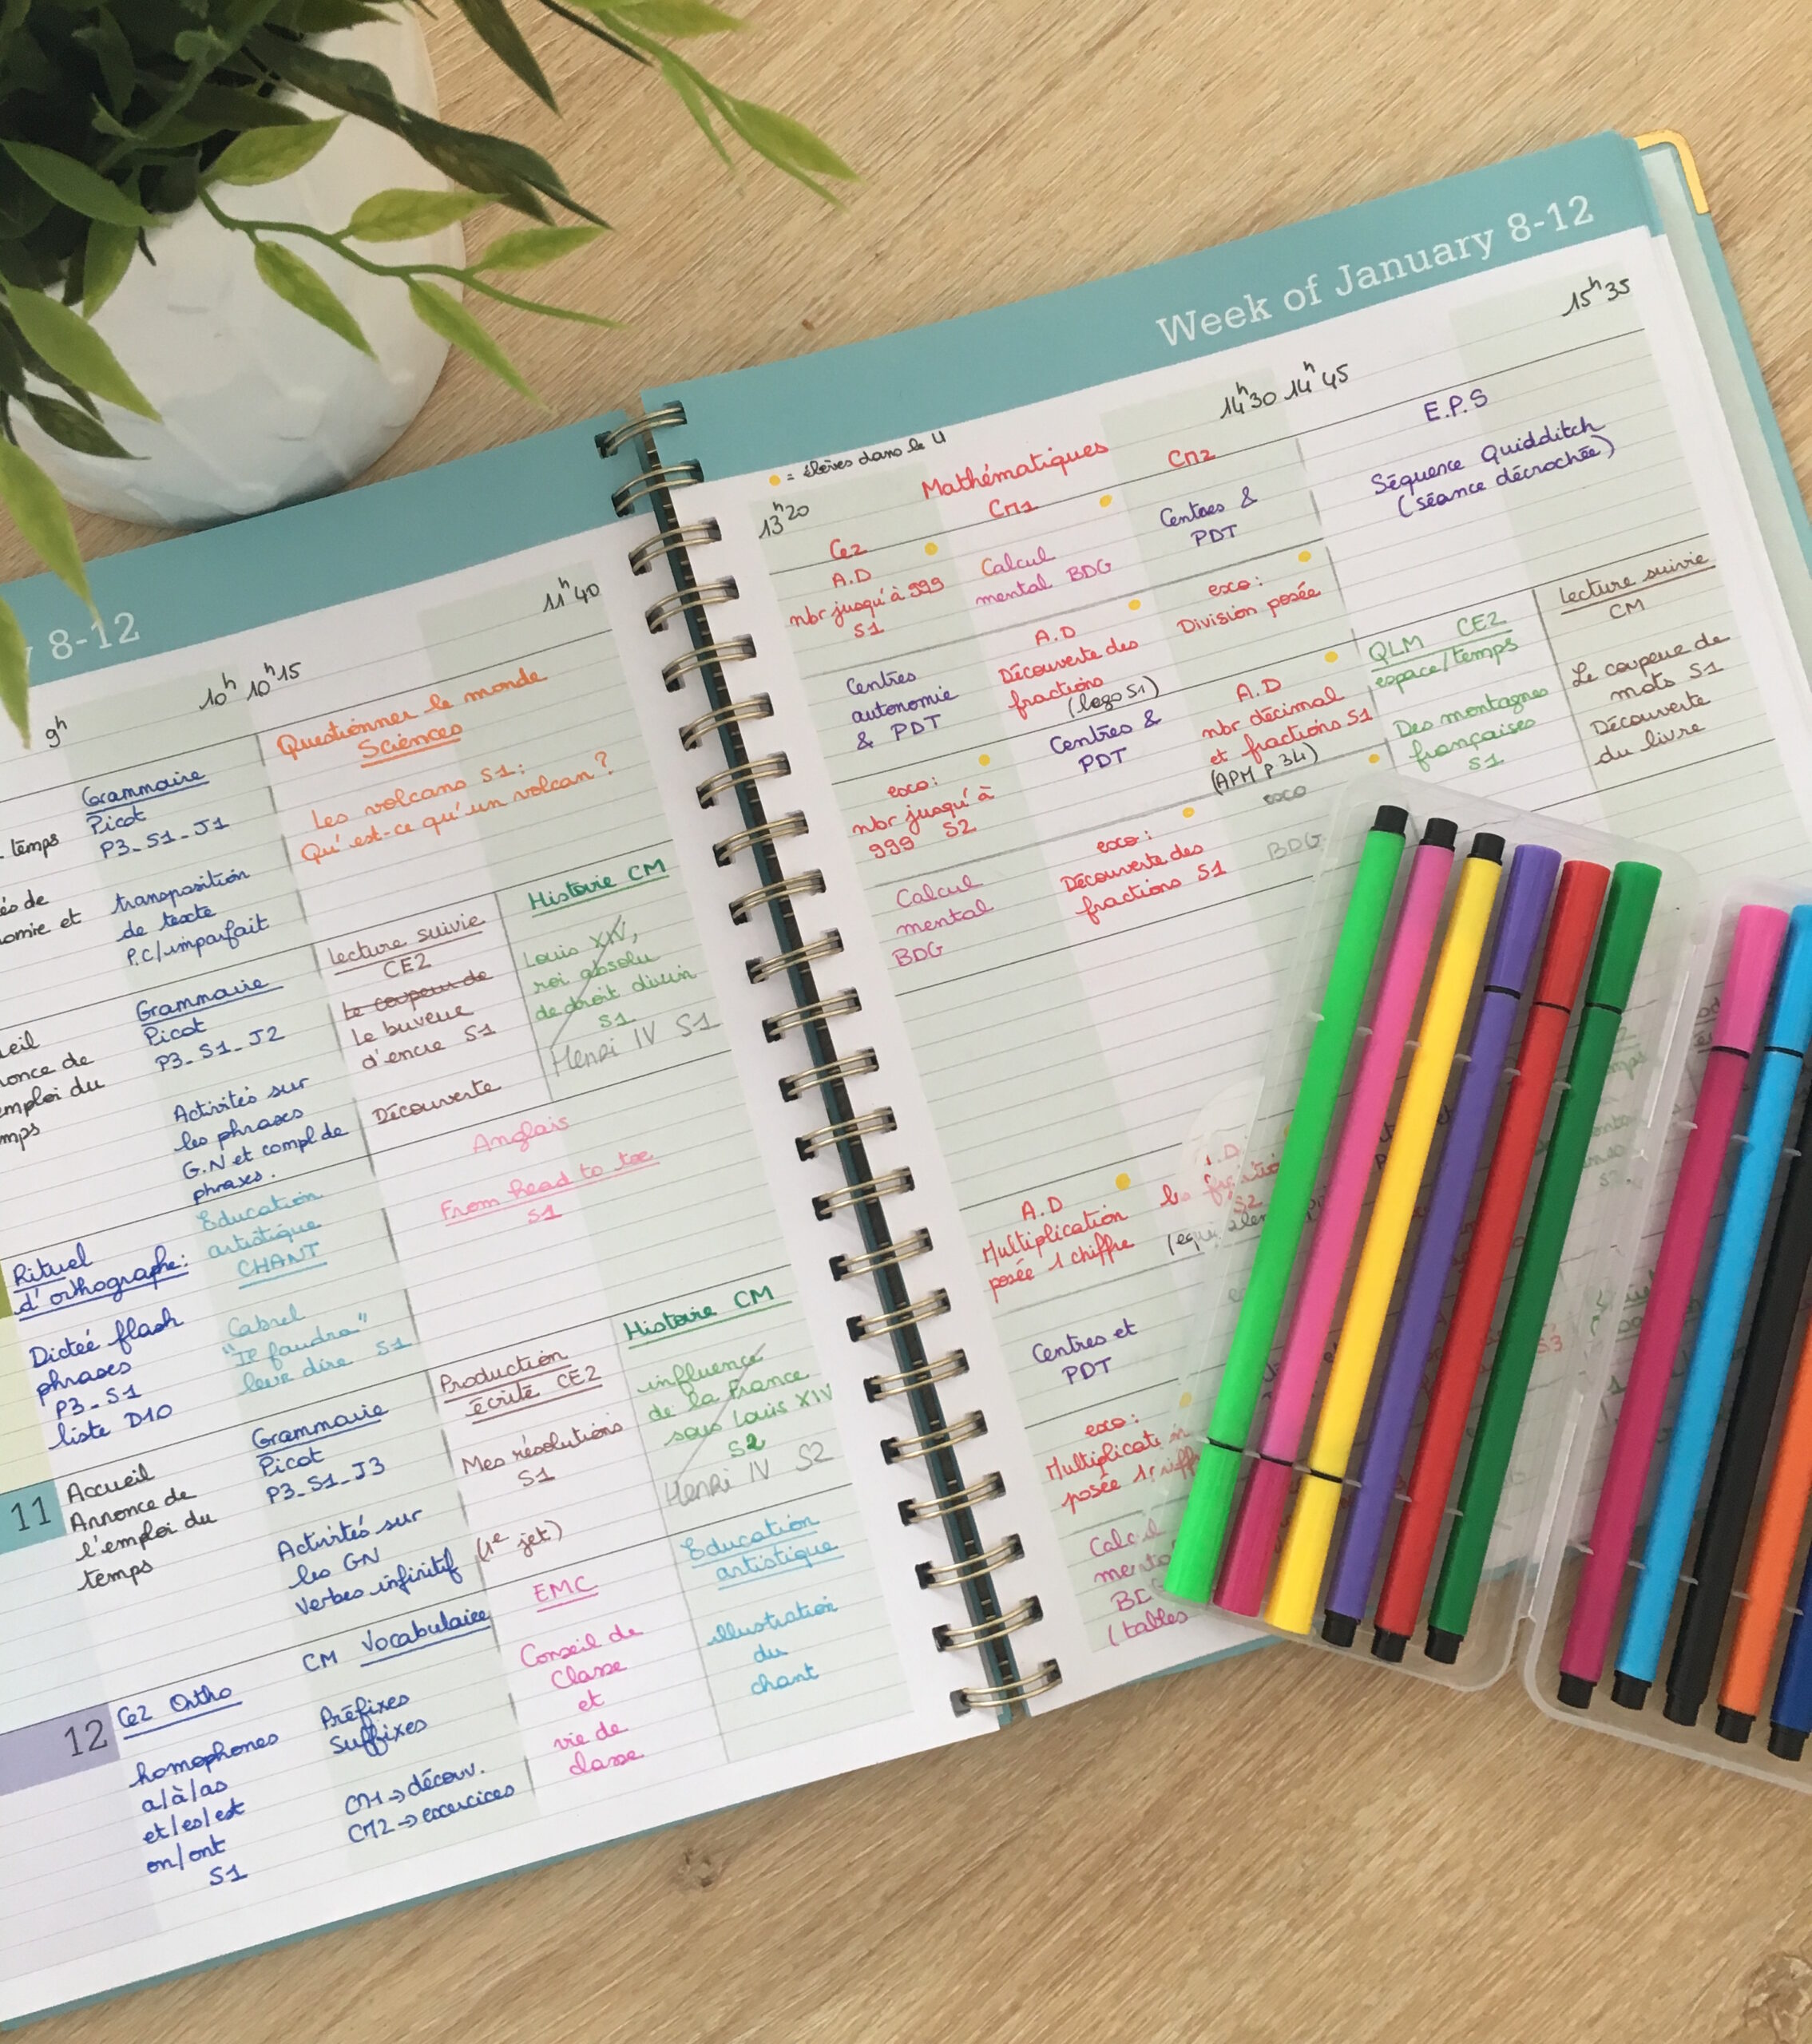 8-12
9h
10h 10h15
11h40
temps
Grammaire
Picot
P3_S1_J1
transposition
de texte
P.C/imparfait
Questionner le monde
Sciences
Les volcans S1:
Qu'est-ce qu'un volcan?
Grammaire
Picot
P3_S1_J2
Activités sur
les phrases
G.N et compl de
phrases.
lecture suivie
CE2
Le coupeur de
Le buveur
d'encre S1
Découverte
Histoire CM
Louis XIV,
roi absolu
de droit divin
S1
Henri IV S1
Rituel
d'orthographe:
Dictée flash
phrases
P3_S1
liste D10
Education
artistique
CHANT
Cabrel
"Il faudra"
leur dire S1
Anglais
From head to toe
S1
11
Accueil
Annonce de
l'emploi du
temps
Grammaire
Picot
P3_S1_J3
Activités sur
les GN
Verbes infinitif
Production
écrite CE2
Mes résolutions
S1
(1e jet)
Histoire CM
influence
de la France
sous Louis XIV
S2
Henri IV S2
12
Ce2 Ortho
homophones
a/à/as
et/es/est
on/ont
S1
CM Vocabulaire
Préfixes
Suffixes
CM1→découv.
CM2→exercices
EMC
Conseil de
Classe
et
vie de
classe
Education
artistique
illustration
du
chant
Week of January 8-12
= élèves dans le U
13h20
14h30 14h45
15h35
Mathématiques
Ce2
CM1
CM2
A.D
nbr jusqu'à 999
S1
Calcul
mental BDG
Centres &
PDT
E.P.S
Séquence Quidditch
(séance décrochée)
Centres
autonomie
& PDT
A.D
Découverte des
fractions
(lego S1)
exco:
Division posée
exco:
nbr jusqu'à
999 S2
Centres &
PDT
A.D
nbr décimal
et fractions S1
(APM p.34)
exco
QLM CE2
espace/temps
Des montagnes
françaises
S1
lecture suivie
CM
Le coupeur de
mots S1
Découverte
du livre
Calcul
mental
BDG
exco:
Découverte des
fractions S1
BDG
A.D
Multiplication
posée 1 chiffre
S2
Centres et
PDT
exco:
posée
S3
(tables